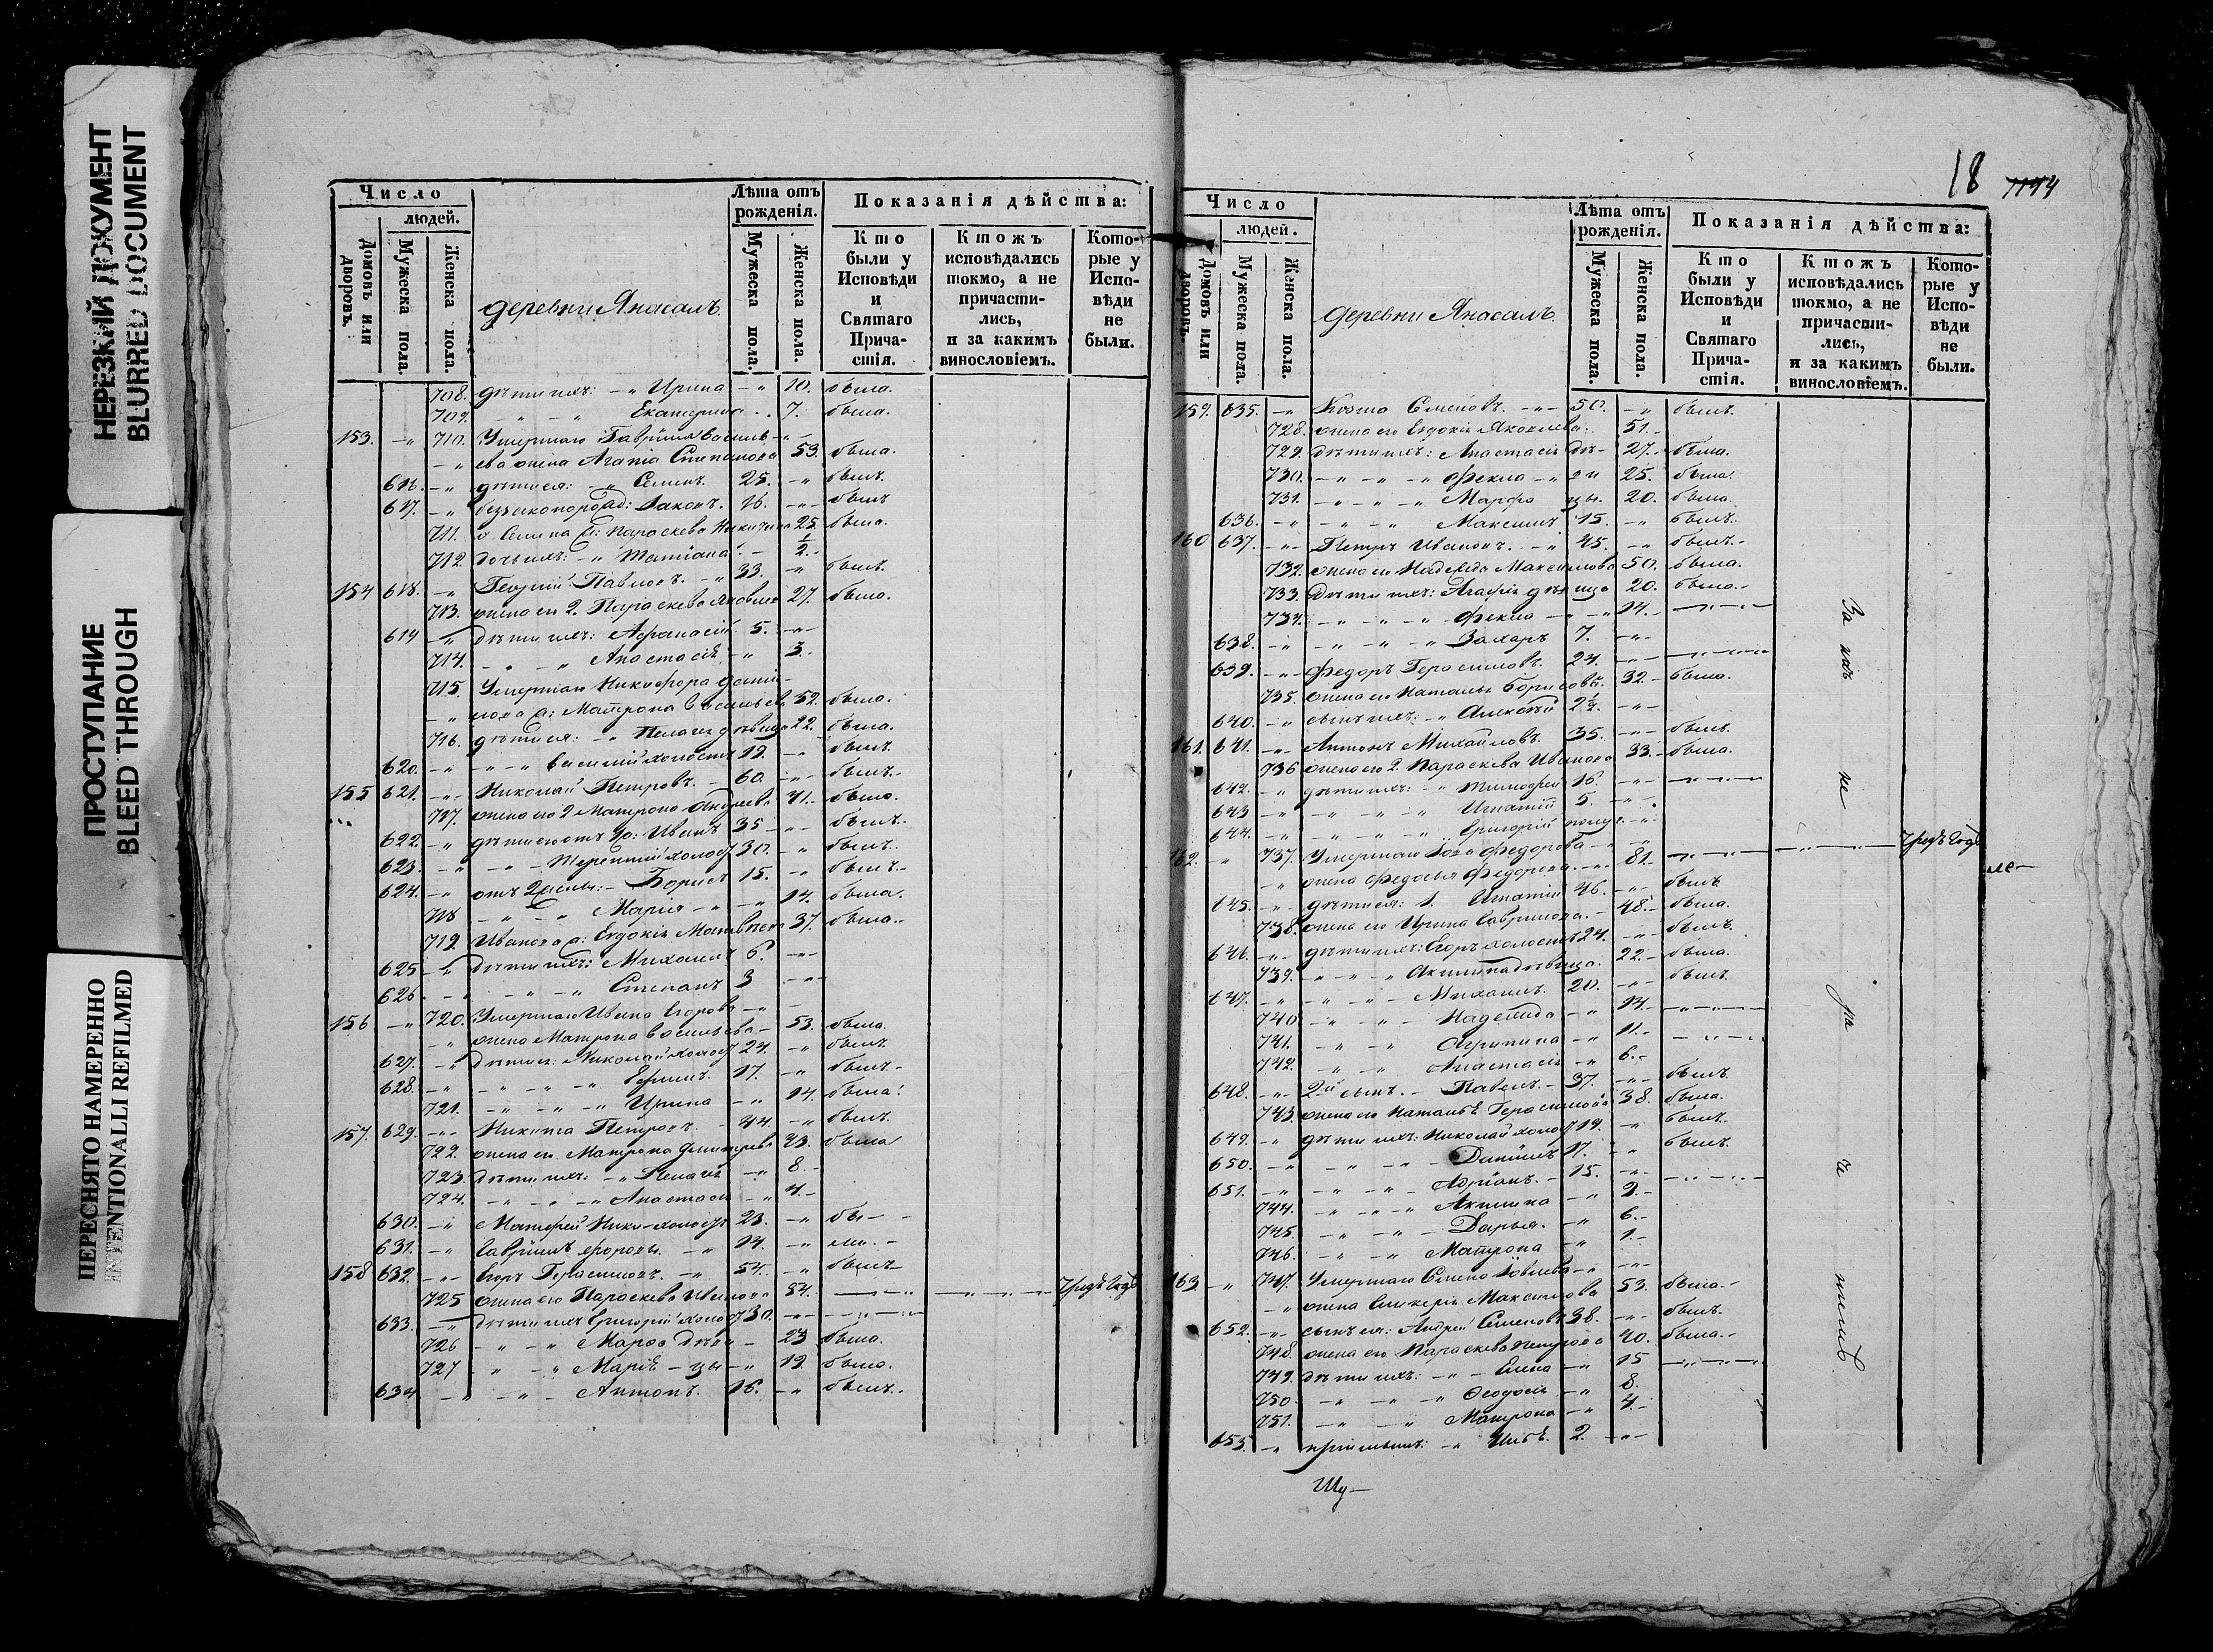 НЕРЕЗКИЙ ДОКУМЕНТ
BLURRED DOCUMENT
ПРОСТУПАНИЕ
BLEED THROUGH
ПЕРЕСНЯТО НАМЕРЕННО
INTENTIONALLI REFILMED
Число
людей.
Домовъ или дворовъ.
Мужеска пола.
Женска пола.
деревни Янасалъ
Лѣта отъ рожденія.
Мужеска пола.
Женска пола.
Показанія дѣйства:
Кто были у Исповѣди и Святаго Прича-стія.
Ктожъ исповѣдались токмо, а не причасти-лись, и за какимъ винословіемъ.
Кото-рые у Испо-вѣди не были.
708. дѣти ихъ: - " Ирина - " 10. была.
709. " - " Екатерина - . 7. была.
153. - " 710. Умершаго Гаврiила Василь- " -
- " ева жена Агапiа Степанова 53. была.
616. - " дѣти ея: - " Семенъ. 25. - " былъ.
617. - " Iаковъ. 16. - " былъ
711. Семена Параскева Никитина 25. была.
712. дочь ихъ: - " Татiана. - 1/2. -
154 618. - " Георгiй Павловъ. - " 33. - " былъ.
713. жена его 2. Параскева Яковле 27. была.
619 - " дѣти ихъ: Афанасiй 5. - " -
714. - " - " Анастасiя - " 3. -
715. Умершаго Никифора Дани -
- " лова Матрона Васильева 52. была.
716. дѣти ея: - " Пелагея дѣвица 22. была.
620. - " - " - " Василiй холостъ 19. - " былъ.
155 621. - " - Николай Петровъ. - 60. - " - былъ. -
717. жена его 2 Матрона Андреева 41. - была.
622. - " дѣти его отъ 1й: Иванъ 35 - " - былъ. -
623. - " " - Терентiй холос 30. - " былъ.
624. - " отъ 2 жены: - Борисъ 15. - " былъ. -
718 - " - " Марiя - " - " 14. была.
719. Иванова Евдокiя Матвѣева 37. была. -
625 - " дѣти ихъ: Михаилъ 6. - " -
626 - " - " - " Степанъ 3 - " -
156 - " 720. Умершаго Ивана Егорова - " -
- " жена Матрона Васильева - 53. была.
627. - " дѣти ея: Николай холос 24. - " былъ.
628. - " - " - " - " Ефимъ. 17. - " былъ. -
721. - " - " - " Ирина - " 14. была.
157. 629. - " - Никита Петровъ. - 44. - " былъ.
722. жена его Матрона Дмитриева 43. была
723. дѣти ихъ: - " Пелагея - " 8. -
724. - " - " - " Анастасiя - " 4. -
630. - " Матфей Ники- холостъ 23. - " бы - -
631. - " Гаврiилъ форовы. - " 14. - " ли. -
158 632. - " - Егоръ Герасимовъ. - " 54. - " былъ -
725 жена его Параскева Иванова 54. - " - - " - " -
633. - " дѣти ихъ Григорiй холос 30. - " - - " - " -
726 - " - " Марфа дѣви - 23 была.
727 - " - " Марiя - цы - " 19. была.
634 - " - " - Антонъ. 16. - " былъ. -
18 
Число
людей.
Домовъ или дворовъ.
Мужеска пола.
Женска пола.
деревни Янасалъ
Лѣта отъ рожденія.
Мужеска пола.
Женска пола.
Показанія дѣйства:
Кто были у Исповѣди и Святаго Прича-стія.
Ктожъ исповѣдались токмо, а не причасти-лись, и за какимъ винословіемъ.
Кото-рые у Испо-вѣди не были.
159. 635. - " Козма Семеновъ. - " - 50. - " былъ.
728. жена его Евдокiя Яковлева. 51. -
729. дѣти ихъ: Анастасiя дѣ - 27. - была.
730. - " - " - " Фекла - " ви 25. была.
731. - " - " - " Марфа цы. 20. была.
636. - " - " - " Максимъ 15. - " былъ.
160 637. - " - Петръ Ивановъ. - " 45. - " былъ. -
732. жена его Надежда Максимова 50. была.
733. дѣти ихъ: Агафiя дѣвица 20. была. -
734. - " - " - " Фекла - " - " 14. - - " - " -
638. - " - " - " - " Захаръ 7. - " -
639. - " - Федоръ Герасимовъ. 24. - " - - " - " -
735. жена его Наталья Борисова. 32. - была.
640. - " сынъ ихъ: - " Алексѣй 2 1/2. - " -
161. 641. - " - Антонъ Михайловъ. 35. - " - былъ.
736 жена его 2. Параскева Иванова 33. - была.
642. - " дѣти ихъ: - " Тимофей 16. - " - - " - " -
643 - " - " - " Игнатiй 5. - " -
644. - " - " - " - " Григорiй полуг. - " -
162. " 737. Умершаго Федорова - " - "
- " жена Федосья Федорова. - " 81. - - " - " - - " - " -
645. - " дѣти ея: 1. Игнатiй 46. - " - былъ
738. жена его Ирина Гаврилова. - 48. - была.
646. - " - дѣти ихъ: Егоръ холостъ 24. - " - былъ.
739. - " - " - " Акилина дѣвица. 22. - была.
647. - " - " - " - Михаилъ. 20. - " - былъ.
740 - " - " - Надежда - " 14. - - " - " -
741. - " - " Агрипина - " 11. - - " - " -
742. - " - " Анастасiя - " 6. -
648. - " - 2й сынъ. - Павелъ. - 37. - " - былъ.
743. жена его Наталья Герасимова 38. была.
649. - " дѣти ихъ: Николай холос 19. - " былъ.
650. - " - " - " - Данiилъ 17. - " былъ.
651. - " - " - " - Адрiанъ. - 15. - " - - " - " -
744. - " - " - " Акилина - " 9. -
745. - " - " - Дарья. - " 6. -
746. - " - " Матрона - " 1. -
163. - " 747. Умершаго Семена Iовлева - " - " -
- " жена Гликерiя Максимова 53. была. -
652. - " - сынъ ея: Андрей Семеновъ 38. - " былъ.
748. жена его Параскева Петрова 40. была. -
749. дѣти ихъ: - " - Елена - " 15 - " - " -
750. - " - " - " Феодосiя - " 8.
751. - " - " Матрона - " 4. -
653. - " - " 2. - " -
За ихъ не